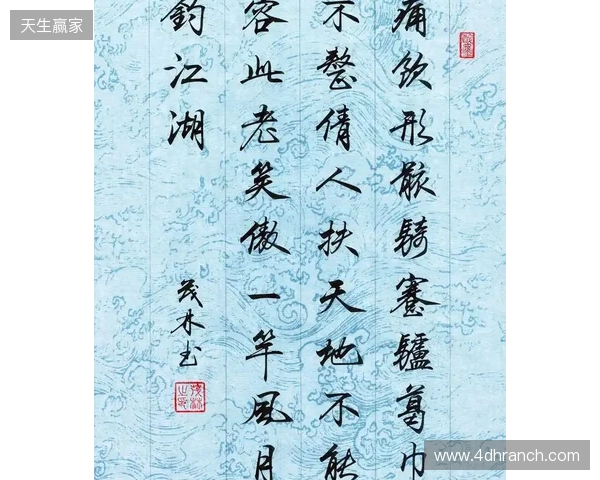 天生赢家
痛飲形骸騎蹇驢葛巾
不整倩人扶天地不能
容此老笑傲一竿風月
釣江湖
茂林书
www.4dhranch.com